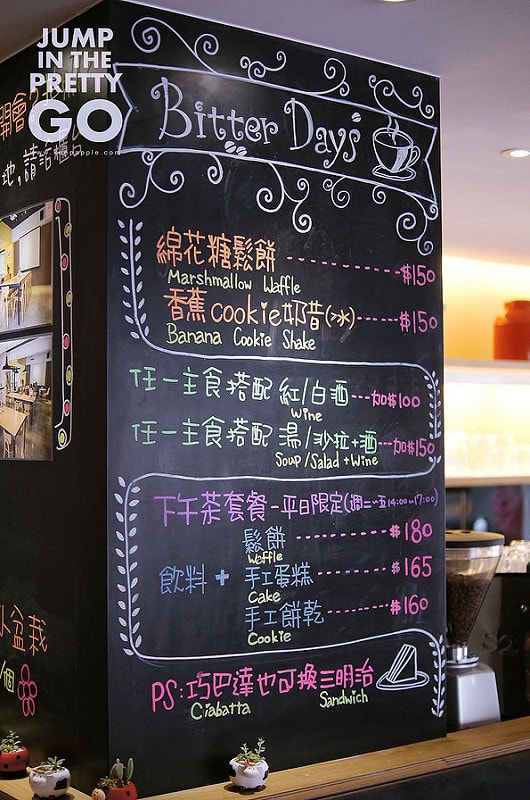 JUMP
IN THE
PRETTY
GO
Bitter Days
地,請洽櫃台
綿花糖鬆餅 $150
Marshmallow Waffle
香蕉cookie奶昔(冰) $150
Banana Cookie Shake
任一主食搭配 紅/白酒 加$100
Wine
任一主食搭配 湯/沙拉+酒 加$150
Soup/Salad+Wine
下午茶套餐-平日限定(週二~五14:00~17:00)
鬆餅 $180
Waffle
飲料 + 手工蛋糕 $165
Cake
手工餅乾 $160
Cookie
PS:巧巴達也可換三明治
Ciabatta Sandwich
小盆栽
/個